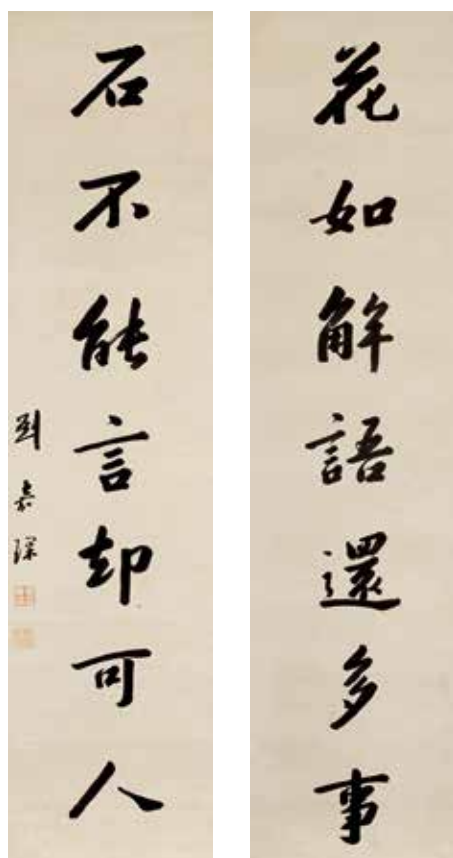 花如解語還多事
石不能言却可人
劉嘉琛